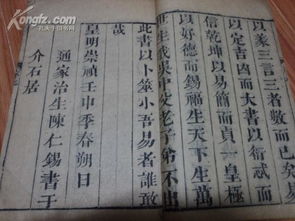 以蒙三言三者敷而已矣易
以定吉凶而大書以衍忒而
信乾坤以易簡而貞一皇極
以好德而錫福生天下生萬
世生我吳中父老子弟不出
此書以卜筮小吾易者誰敢
哉
皇明崇禎壬申季春朔日
通家治生陳仁錫書于
介石居